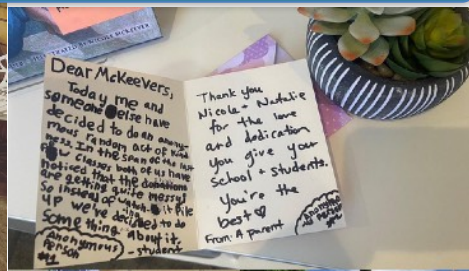 ILLUSTRATED BY NICOLE MCKEEVER
Dear McKeevers,
Today me and
someone else have
decided to do an anony-
mous random act of kind
ness. In the span of the last
few classes both of us have
noticed that the donations
are getting quite messy!
So instead of watch- it pile
ing
up we've decided to do
something about it.
- student
Anonymous
Person
#1
Thank you
Nicole + Natalie
for the love
and dedication
you give your
school + students.
You're the
best ♡
From: A parent
Anonymous
Person
#2